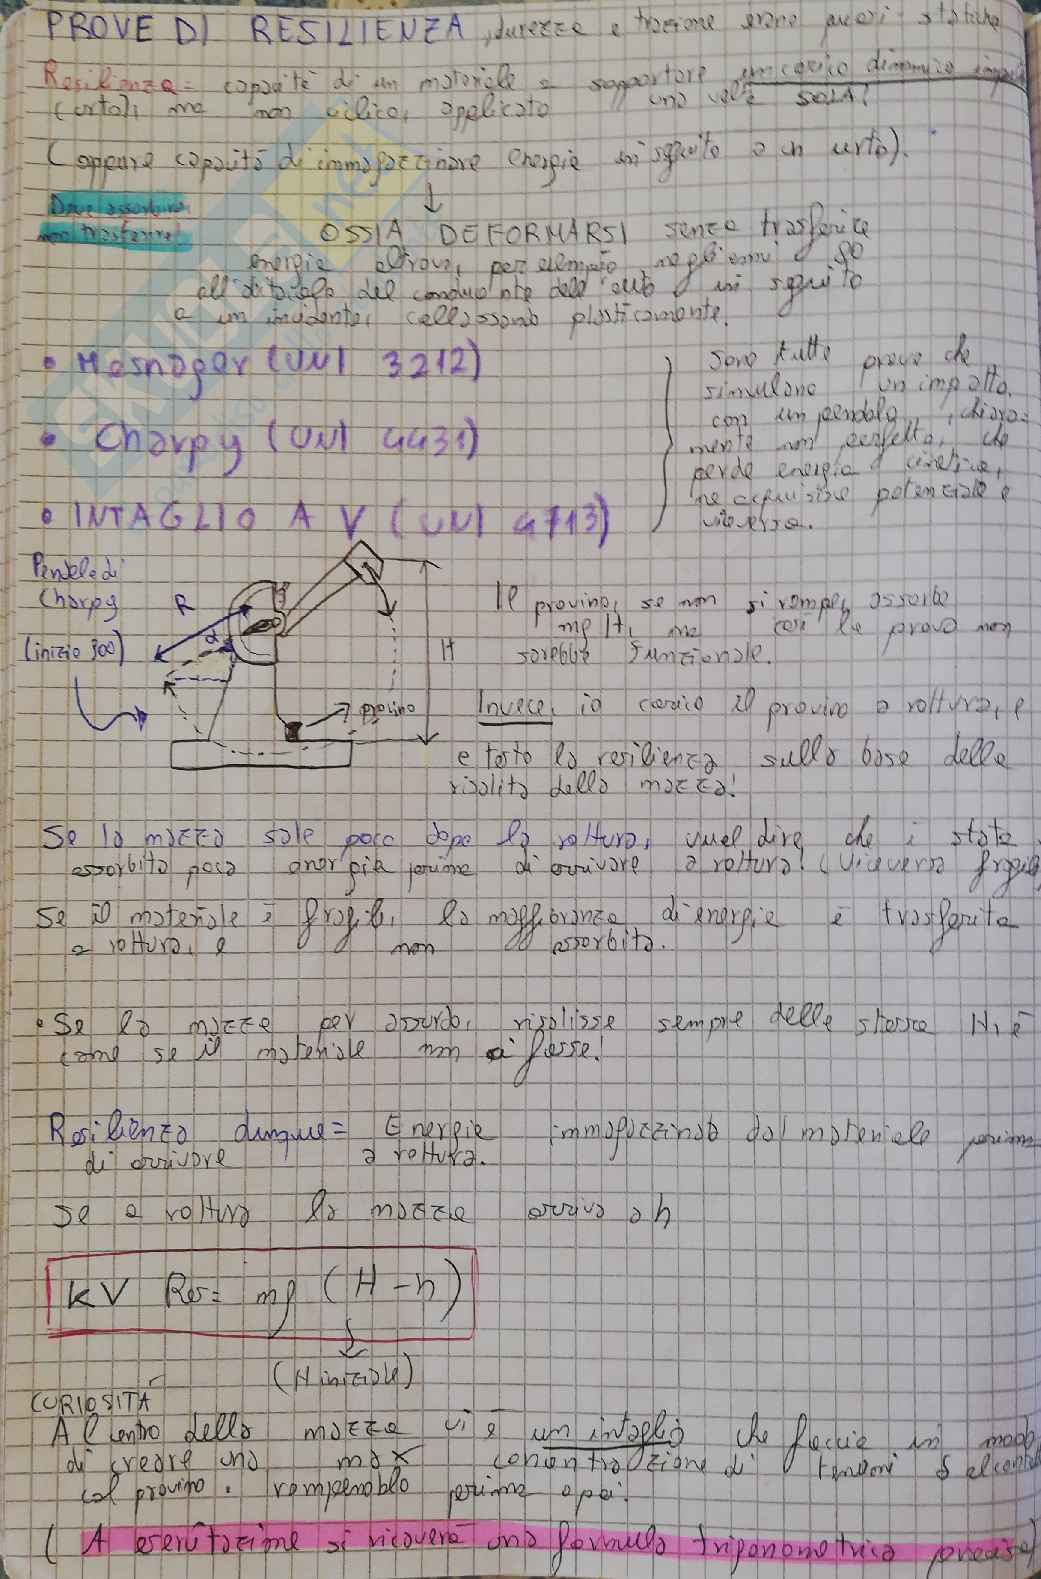 PROVE DI RESILIENZA, durezza e trazione erano quasi-statiche
Resilienza = capacità di un materiale a sopportare un carico dinamico
(urto), ma non ciclico, applicato una volta SOLA!
(oppure capacità di immagazzinare energia in seguito a un urto).
Deve assorbire
non trasferire
OSSIA DEFORMARSI senza trasferire
energia altrove, per esempio negli anni 80
all'abitacolo del conducente dell'auto in seguito
a un incidente, collassando plasticamente.
• Mesnager (UNI 3212)
• Charpy (UNI 4431)
• INTAGLIO A V (UNI 4713)
Sono tutte prove che
simulano un impatto
con un pendolo, chiara-
mente non perfetto, che
perde energia cinetica,
ne acquisisce potenziale e
viceversa.
Pendolo di
Charpy
(inizio 300)
R
α
H
provino
Il provino, se non si rompe, assorbe
mgH, ma così la prova non
sarebbe funzionale.
Invece, io carico il provino a rottura, e
e testo la resilienza sulla base della
risalita della mazza!
Se la mazza sale poco dopo la rottura, vuol dire che è stata
assorbita poca energia prima di arrivare a rottura! (Viceversa fragile
Se il materiale è fragile, la maggioranza di energia è trasferita
a rottura, e non assorbita.
• Se la mazza per assurdo, risalisse sempre della stessa H, è
come se il materiale non ci fosse!
Resilienza dunque = Energia immagazzinata dal materiale prima
di arrivare a rottura.
Se a rottura la mazza arriva a h
KV Res = mg (H - h)
(H iniziale)
CURIOSITÀ
Al centro della mazza vi è un intaglio che faccia in modo
di creare una max concentrazione di tensioni
col provino, rompendolo prima o poi.
(A esercitazione si ricaverà una formula trigonometrica precisa)